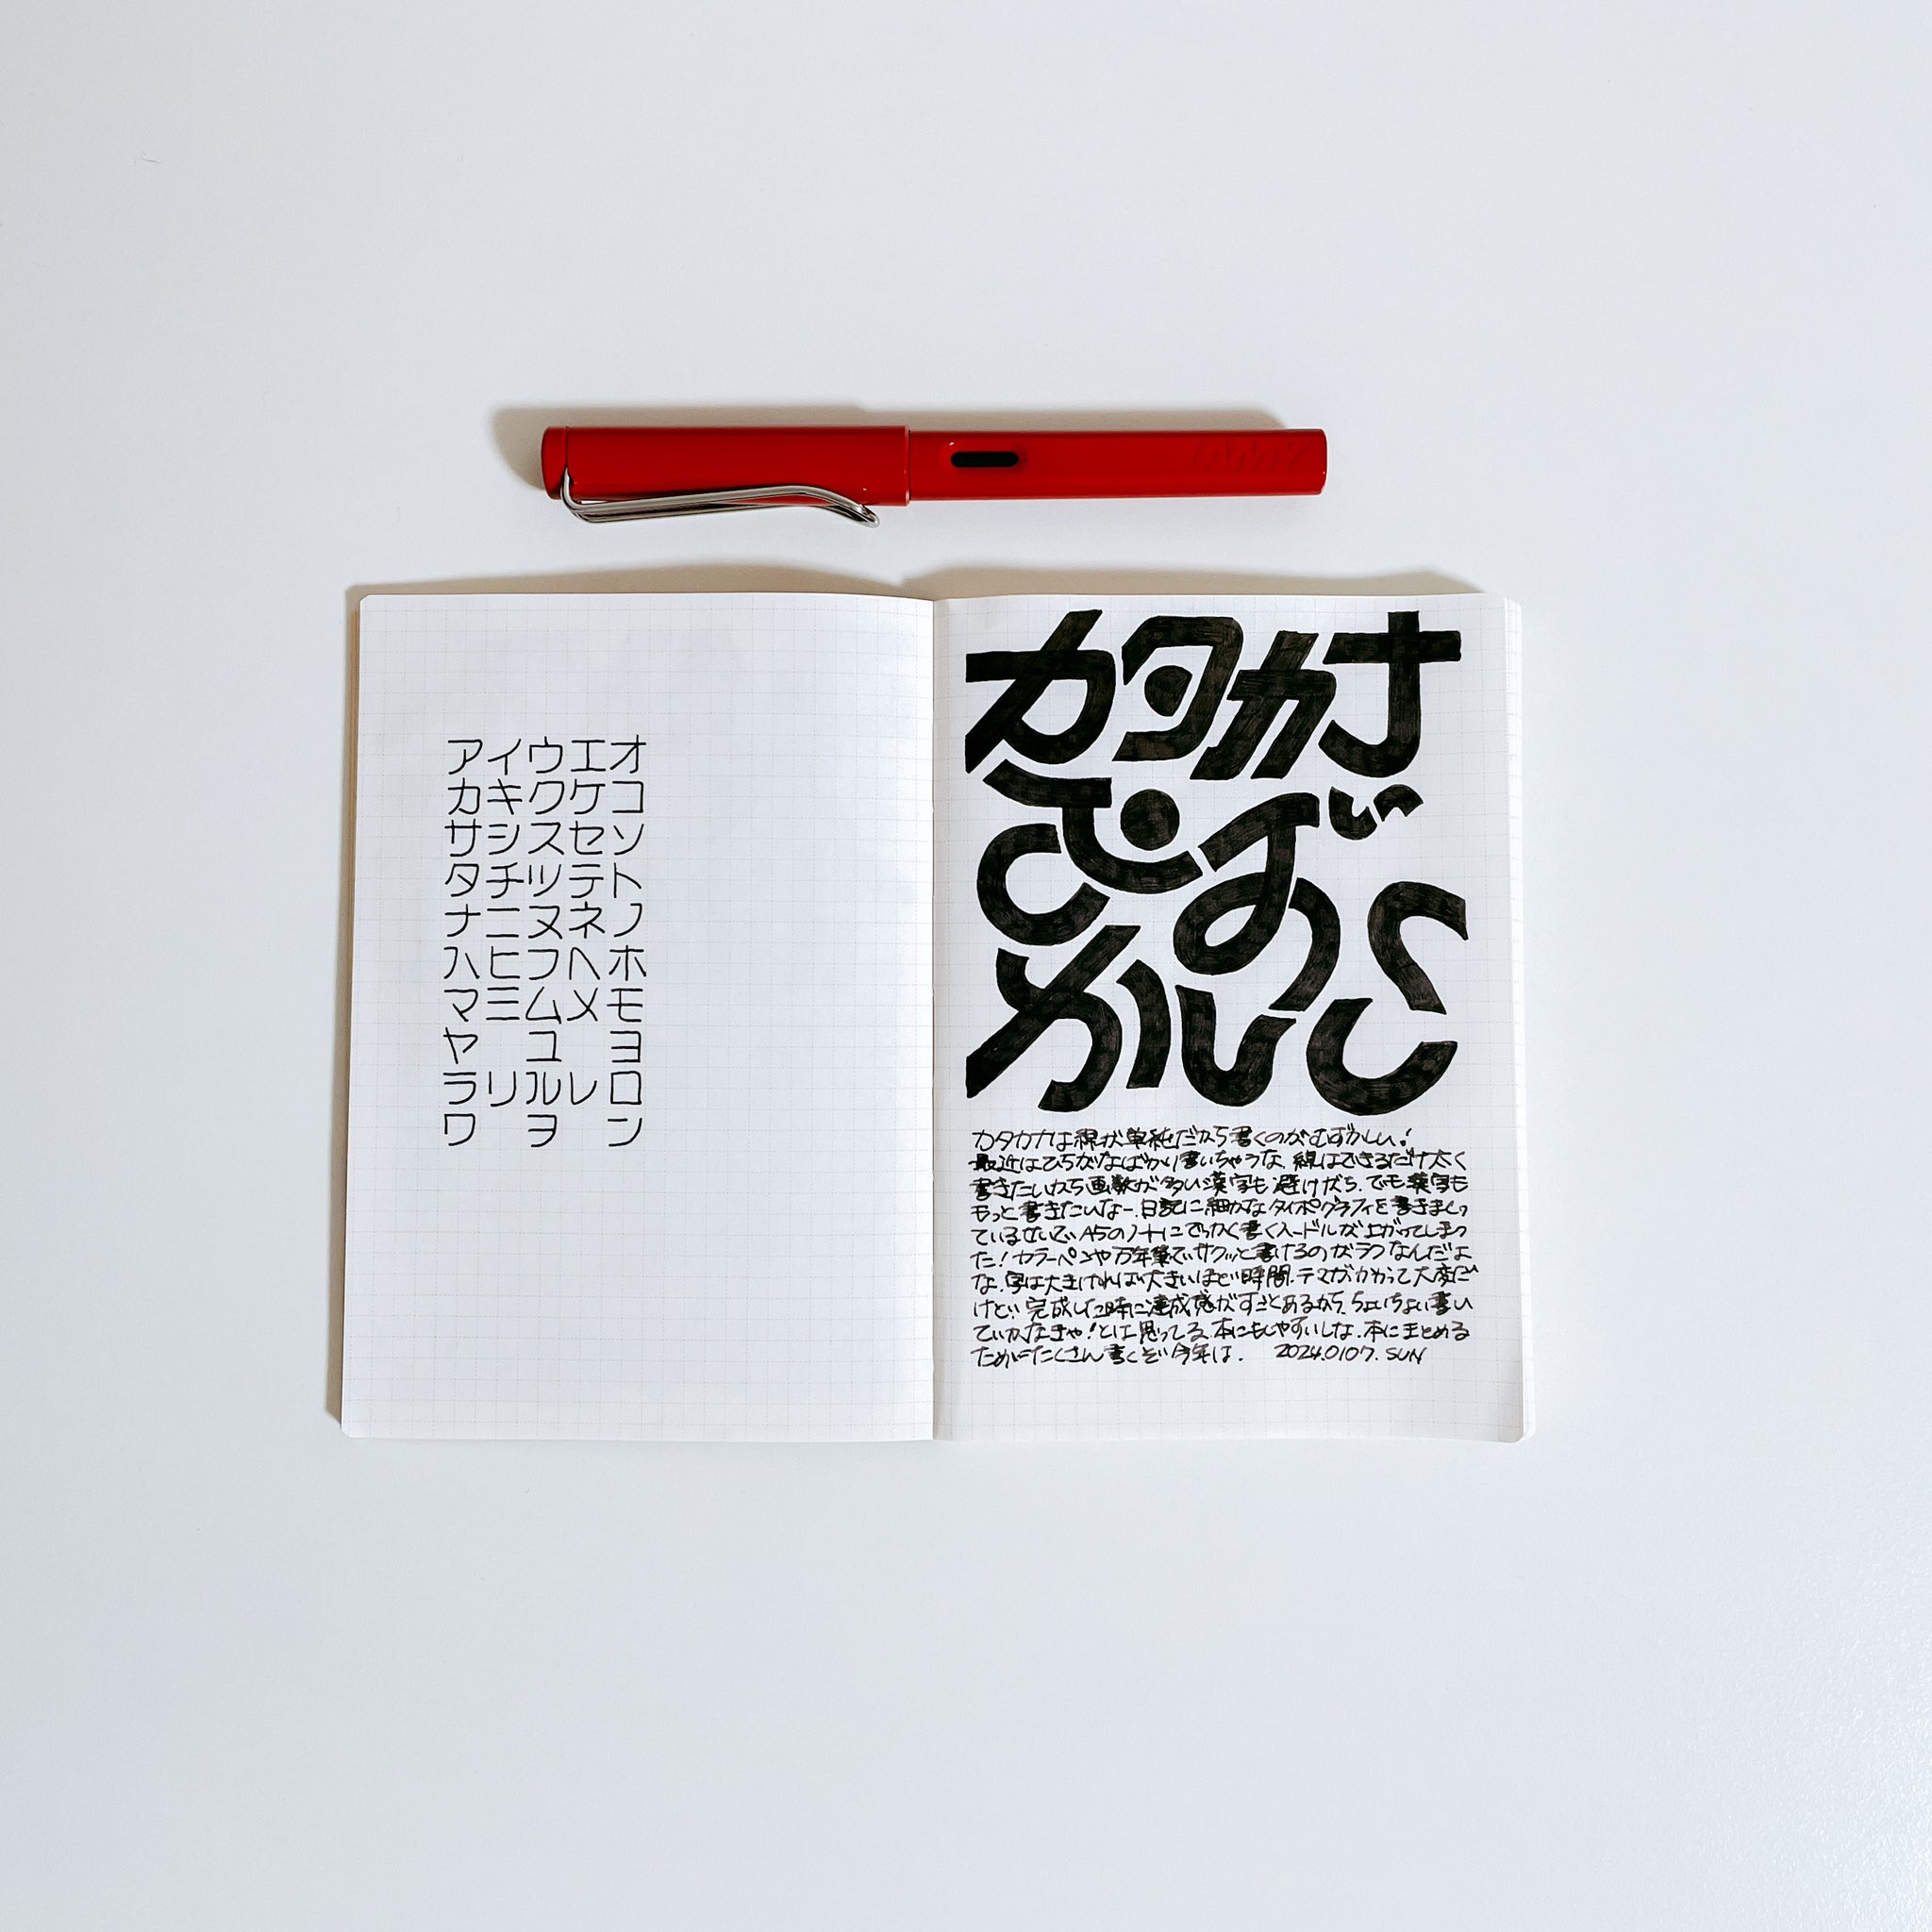 LAMY
アイウエオ
カキクケコ
サシスセソ
タチツテト
ナニヌネノ
ハヒフヘホ
マミムメモ
ヤ ユ ヨ
ラリルレロ
ワ ヲ ン
カタカナ
むずか
しい
カタカナは線が単純だから書くのがむずかしい!
最近はひらがなばかり書いちゃうな.線はできるだけ太く
書きたいから画数が多い漢字も避けがち.でも漢字も
もっと書きたいなー.日記に細かなタイポグラフィを書きまくっ
ているせいで、A5のノートにでっかく書くハードルが上がってしまっ
た!カラーペンや万年筆でサクッと書けるのがラクなんだよ
な.字は大きければ大きいほど時間.テマがかかって大変だ
けど、完成した時に達成感がすごくあるから、ちょいちょい書い
ていかなきゃ!とは思ってる.本にもしやすいしな.本にまとめる
ためにたくさん書くぞ今年は. 2024.0107.SUN